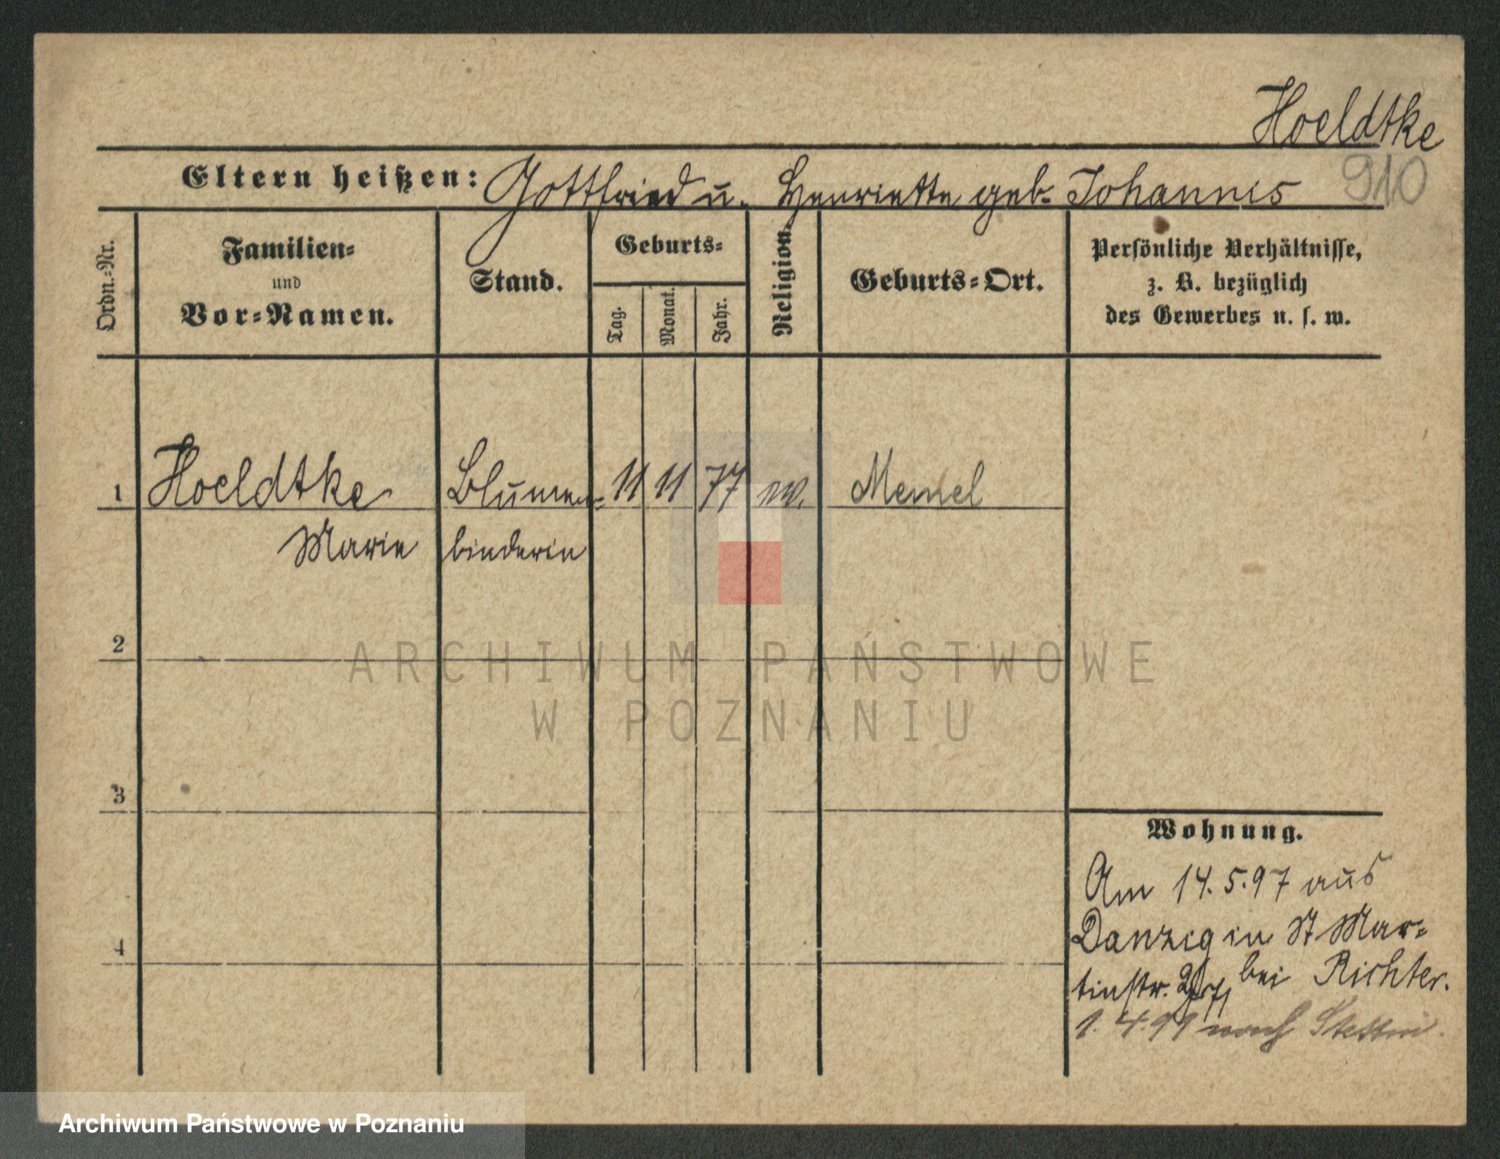 Hoeldtke
910
Eltern heißen: Gottfried u. Henriette geb. Johannes
Ordn.-Nr.
Familien-
und
Vor-Namen.
Stand.
Geburts-
Tag.
Monat.
Jahr.
Religion.
Geburts-Ort.
Persönliche Verhältnisse,
z. B. bezüglich
des Gewerbes u. s. w.
1 Hoeldtke Blumen- 11 11 77 ev. Memel
Marie binderin
2
ARCHIWUM PAŃSTWOWE
W POZNANIU
3
Wohnung.
Am 14.5.97 aus
Danzig in St Mar-
tinstr. bei Richter.
4
1. 4. 99 nach Stettin.
Archiwum Państwowe w Poznaniu